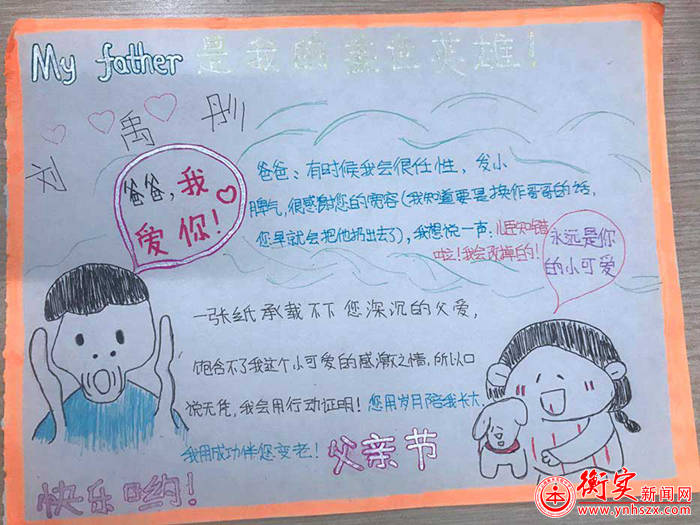 My father 是我的盖世英雄!
刘禹彤
爸爸,我
爱你!
爸爸:有时候我会很任性,发小
脾气,很感谢您的宽容(我知道要是换作哥哥的话,
您早就会把他扔出去了),我想说一声:儿臣知错
啦!我会改掉的!
永远是你
的小可爱
一张纸承载不下您深沉的父爱,
饱含不了我这个小可爱的感激之情,所以口
说无凭,我会用行动证明!您用岁月陪我长大,
我用成功伴您变老!父亲节
快乐哟!
衡实新闻网
www.ynhszx.com